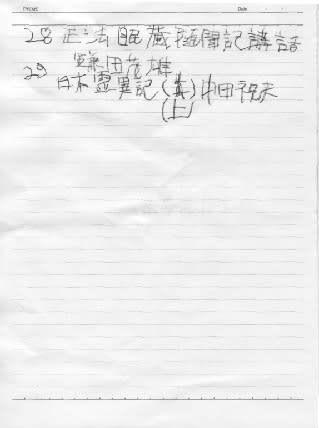 Date
28 正法眼蔵随聞記講話
鎌田茂雄
29 日本霊異記 中田祝夫
(上)